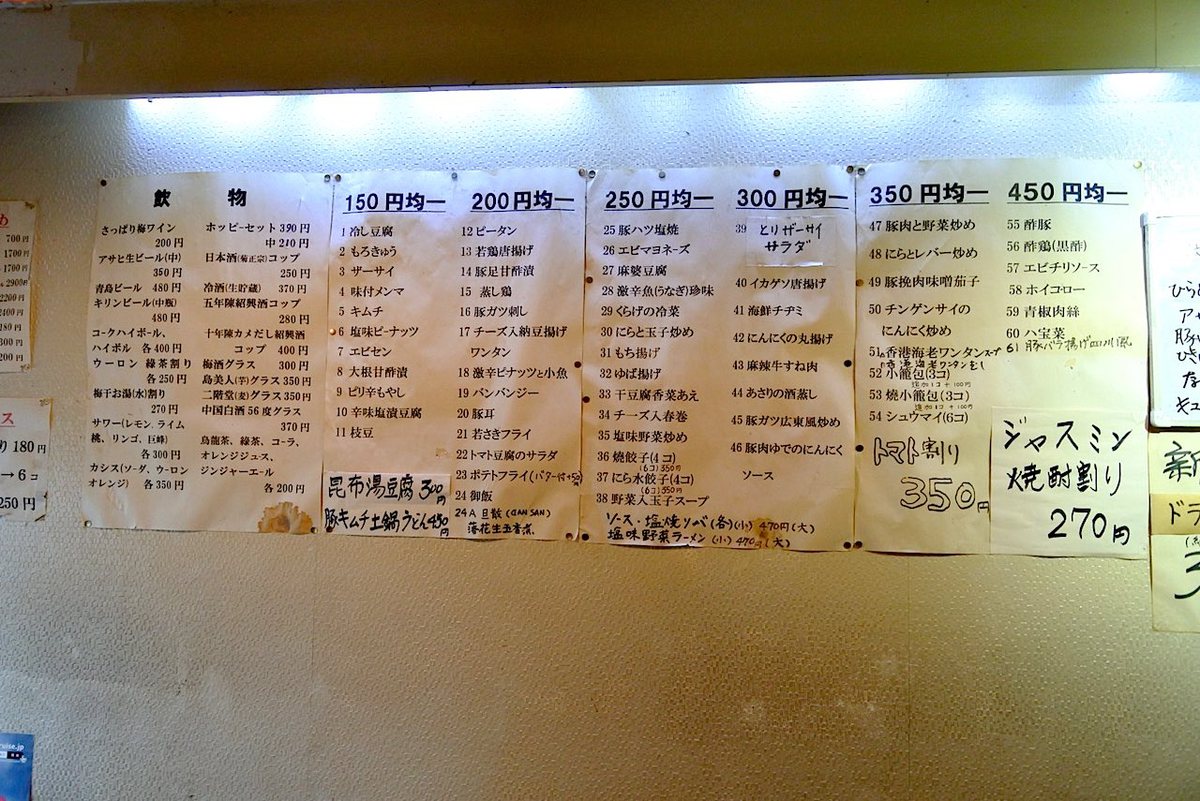 飲物
さっぱり梅ワイン
200円
アサヒ生ビール(中)
350円
青島ビール 480円
キリンビール(中瓶)
480円
コークハイボール、
ハイボル 各400円
ウーロン 緑茶割り
各250円
梅干お湯(水)割り
270円
サワー(レモン、ライム
桃、リンゴ、巨峰)
各300円
カシス(ソーダ、ウーロン
オレンジ) 各350円
ホッピーセット390円
中210円
日本酒(菊正宗)コップ
250円
冷酒(生貯蔵) 370円
五年陳紹興酒コップ
280円
十年陳カメだし紹興酒
コップ 400円
梅酒グラス 300円
島美人(芋)グラス350円
二階堂(麦)グラス350円
中国白酒56度グラス
370円
烏龍茶、緑茶、コーラ、
オレンジジュス、
ジンジャーエール
各200円
150円均一
1冷し豆腐
2もろきゅう
3ザーサイ
4味付メンマ
5キムチ
6塩味ピーナッツ
7エビセン
8大根甘酢漬
9ピリ辛もやし
10辛味塩漬豆腐
11枝豆
昆布湯豆腐 300円
豚キムチ土鍋うどん450円
200円均一
12ピータン
13若鶏唐揚げ
14豚足甘酢漬
15 蒸し鶏
16豚ガツ刺し
17チーズ入納豆揚げ
ワンタン
18激辛ピナッツと小魚
19バンバンジー
20豚耳
21若さきフライ
22トマト豆腐のサラダ
23ポテトフライ(バター付+50)
24御飯
24A
落花生五香煮
250円均一
25豚ハツ塩焼
26エビマヨネーズ
27麻婆豆腐
28激辛魚(うなぎ)珍味
29くらげの冷菜
30にらと玉子炒め
31もち揚げ
32ゆば揚げ
33干豆腐香菜あえ
34チーズ入春巻
35塩味野菜炒め
36焼餃子(4コ)
(6コ)350円
37にら水餃子(4コ)
(6コ)350円
38野菜入玉子スープ
ソース・塩焼ソバ(各)(小) 470円(大)
塩味野菜ラーメン(小) 470円(大)
300円均一
39 とりザーサイ
サラダ
40イカゲソ唐揚げ
41海鮮チヂミ
42にんにくの丸揚げ
43麻辣牛すね肉
44あさりの酒蒸し
45豚ガツ広東風炒め
46豚肉ゆでのにんにく
ソース
350円均一
47豚肉と野菜炒め
48にらとレバー炒め
49豚挽肉味噌茄子
50チンゲンサイの
にんにく炒め
51香港海老ワンタンスープ
香港海老ワンタンむし
52小籠包(3コ)
追加1コ+100円
53焼小籠包(3コ)
追加1コ+100円
54シュウマイ(6コ)
トマト割り
350円
450円均一
55酢豚
56酢鶏(黒酢)
57エビチリソース
58ホイコーロー
59青椒肉絲
60八宝菜
61豚バラ揚げ四川風
ジャスミン
焼酎割り
270円
700円
1700円
1700円
2900円
2200円
2400円
180円
300円
200円
ス
り180円
→6コ
250円
ひら
アサ
豚
ひき
な
キュ
新
ドラ